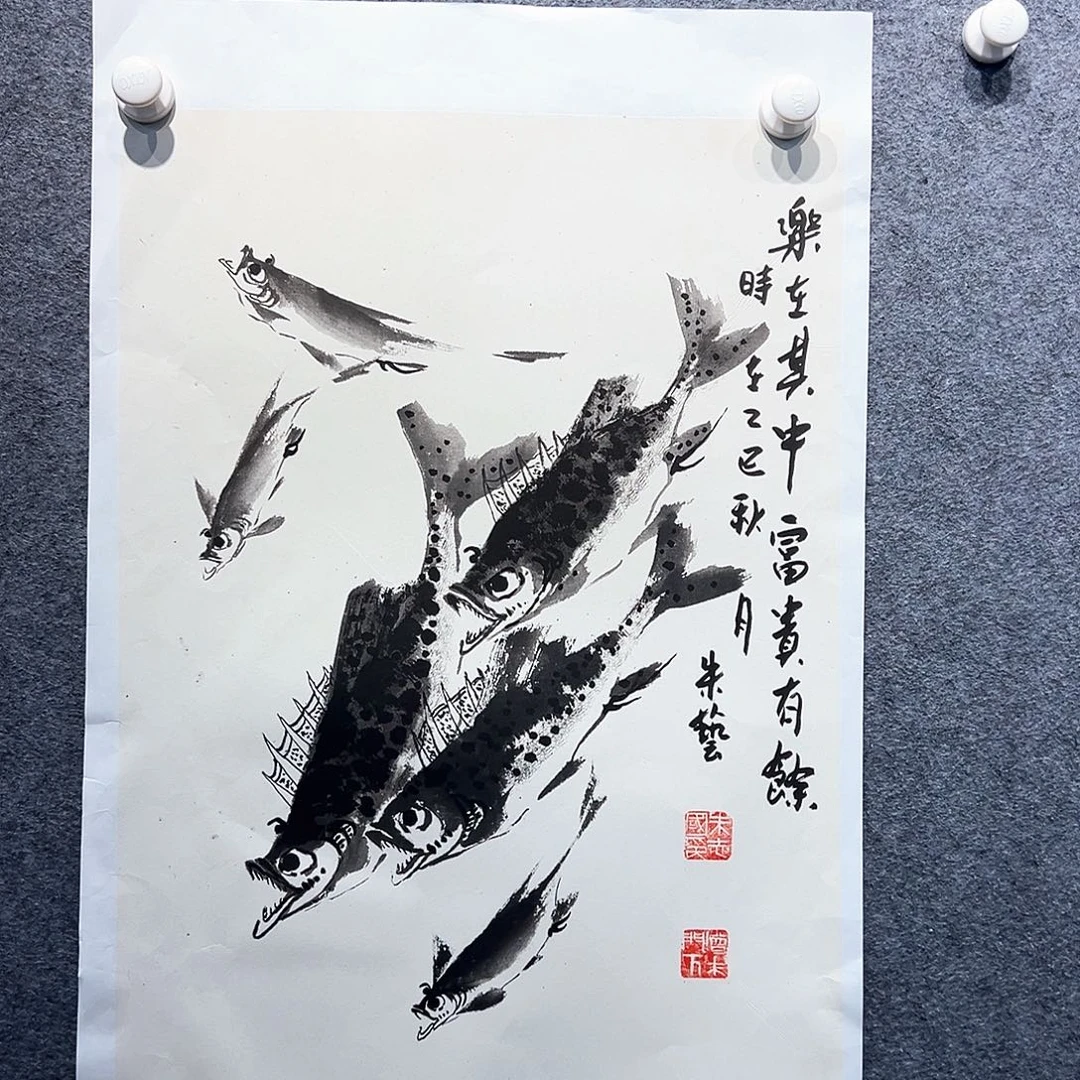 樂在其中富貴有餘
時在乙巳秋月
朱藝
朱志國